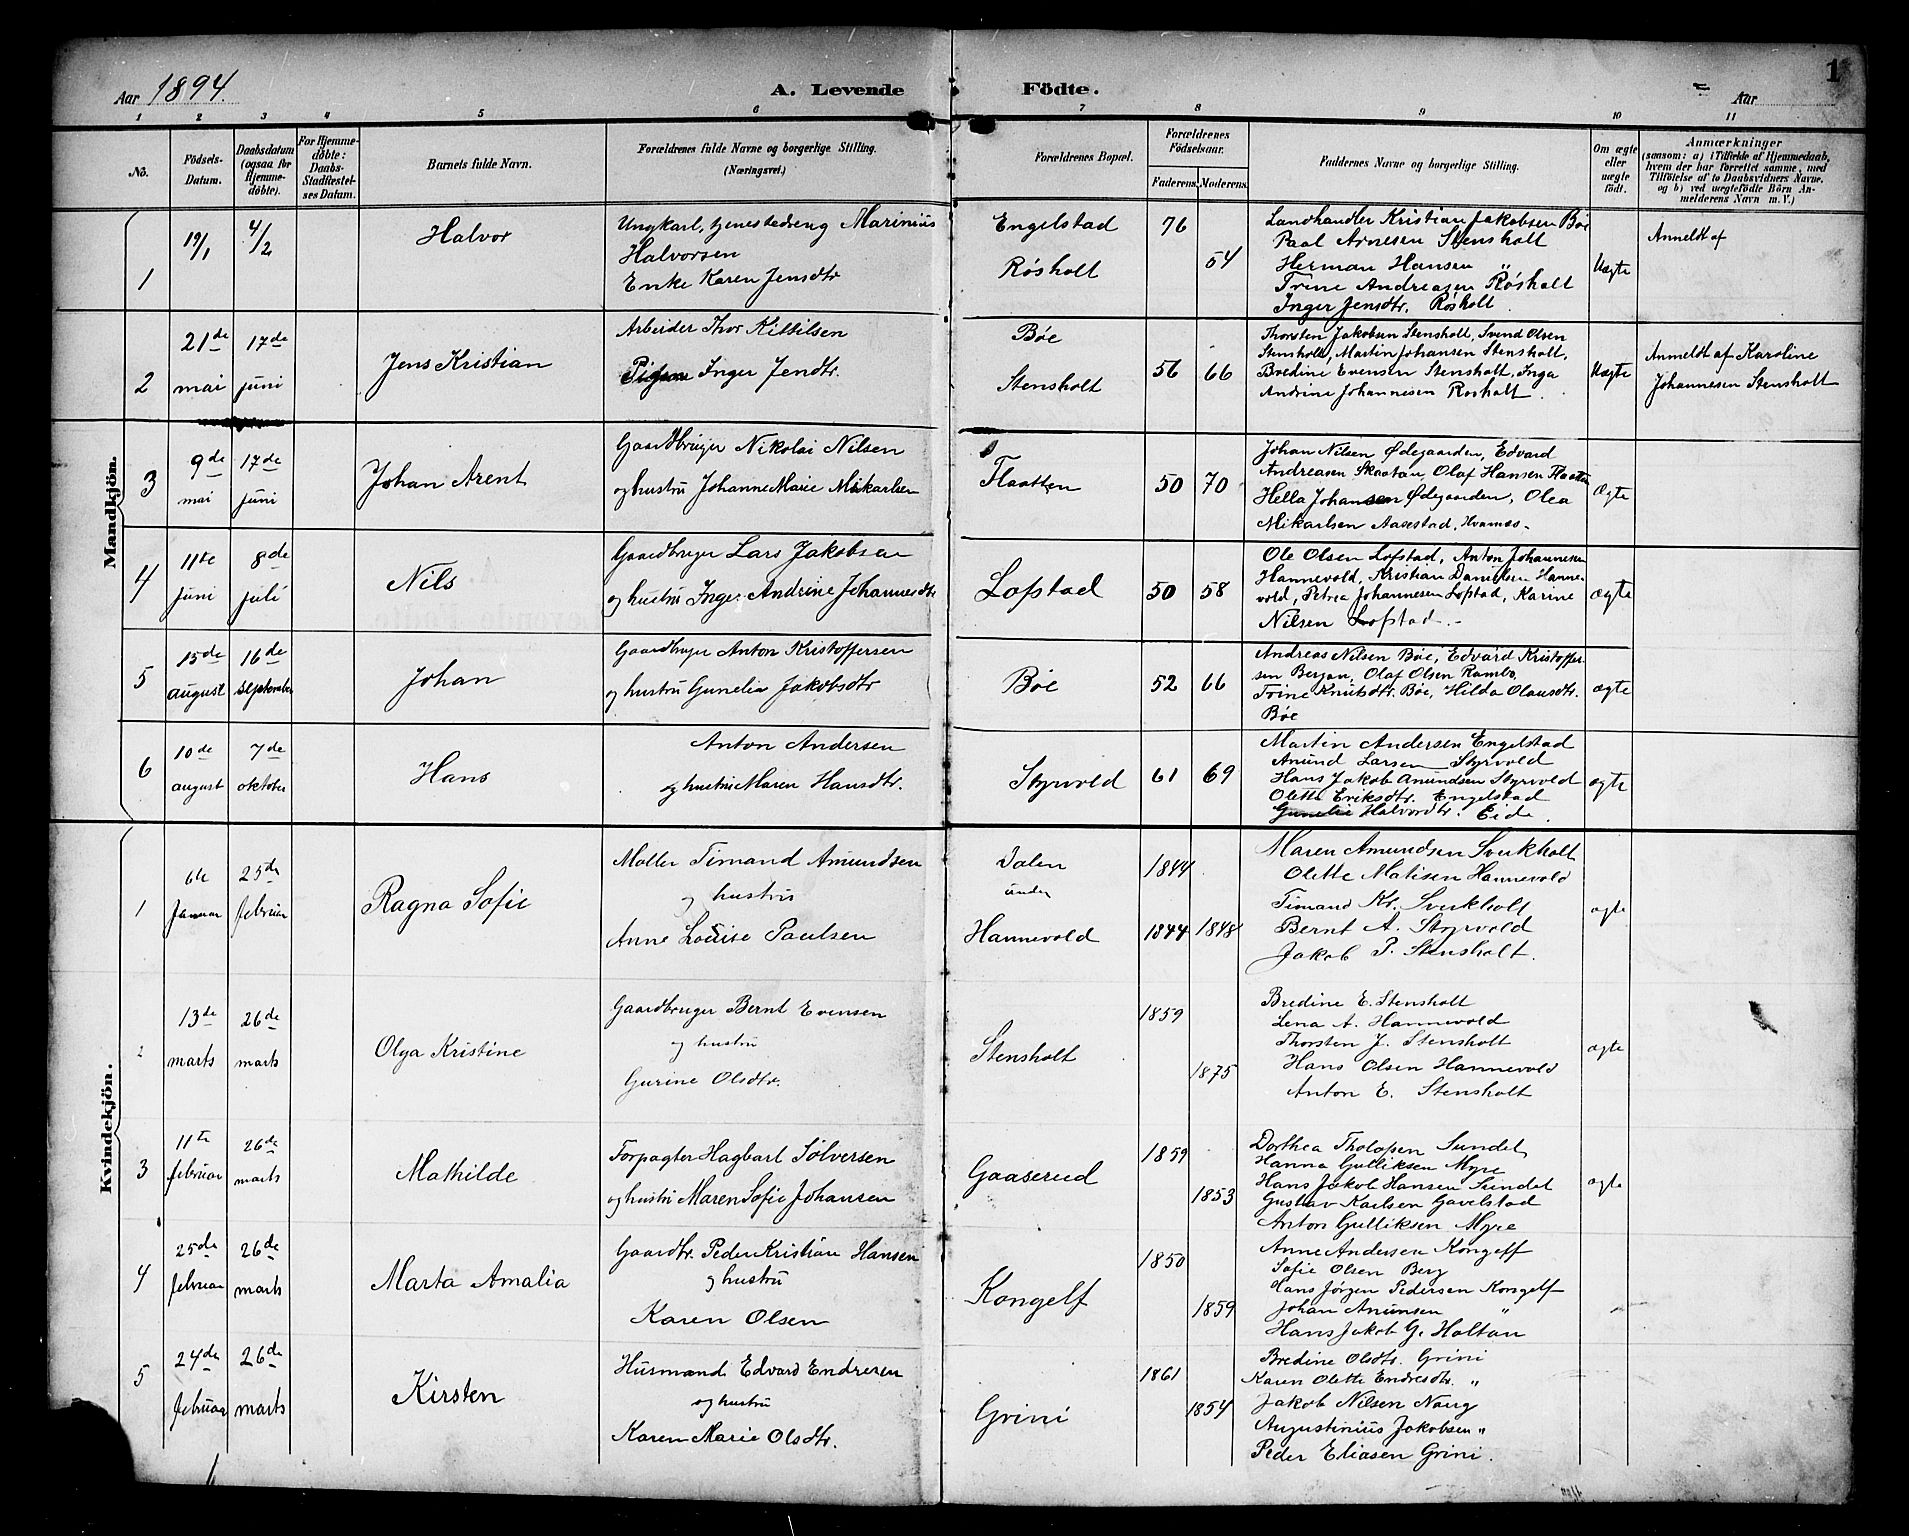 Aar 1894.
A. Levende Födte.
Aar
1
1 2 3 4 5 6 7 8 9 10 11
No.
Födsels-Datum.
Daabsdatum (ogsaa for Hjemme-døbte).
For Hjemme-døbte: Daabs-Stadfæstel-ses Datum.
Barnets fulde Navn.
Forældrenes fulde Navne og borgerlige Stilling. (Næringsvei.)
Forældrenes Bopæl.
Forældrenes Födselsaar.
Faderens. Moderens.
Faddernes Navne og borgerlige Stilling.
Om ægte eller uægte født.
Anmærkninger
(saasom: a) i Tilfælde af Hjemmedaab, hvem der har forrettet samme, med Tilføielse af to Daabsvidners Navne. og b) ved uegtefödte Börn An-melderens Navn m. V.)
Mandkjön.
1 19/1 4/2 Halvor
Ungkarl, tjenestedreng Marinius
Halvorsen
Enke Karen Jensdtr
Engelstad 76
Røsholt 54
Landhandler Kristian Jakobsen Bøe
Paal Arnesen Stensholt
Herman Hansen "
Trine Andreasen Røsholt
Inger Jensdtr. Røsholt
Uægte
Anmeldt af
2 21de mai 17de juni Jens Kristian
Arbeider Thor Kittilsen
Inger Jendtr.
Bøe
Stensholt 56 66
Thorsten Jakobsen Stensholt, Svend Olsen
Stensholt, Martin Johansen Stensholt,
Bredine Evensen Stensholt, Inga
Andrine Johannesen Røsholt.
Uægte
Anmeldt af Karoline
Johannesen Stensholt
3 9de mai 17de juni Johan Arent
Gaardbruger Nikolai Nilsen
og hustru Johanne Marie Mikarlsen
Flaatten 50 70
Johan Nilsen Ødegaarden, Edvard
Andreasen Skaatan Olaf Hansen Flaatten
Hella Johansen Ødegaarden, Olea
Mikarlsen Aasestad, Hvarnes.
Ægte
4 11te juni 8de juli Nils
Gaardbruger Lars Jakobsen
og hustru Inger Andrine Johannesdtr
Lofstad 50 58
Ole Olsen Lofstad, Anton Johannesen
Hannevold, Kristian Danielsen Hanne-
vold, Petrea Johannesen Lofstad, Karine
Nilsen Lofstad.
ægte
5 15de august 16de september Johan
Gaardbruger Anton Kristoffersen
og hustru Gunelia Jakobsdtr
Bøe 52 66
Andreas Nilsen Bøe, Edvard Kristoffer-
sen Bergan, Olaf Olsen Rambo,
Trine Knutsdtr. Bøe, Hilda Olausdtr.
Bøe
ægte
6 10de august 7de oktober Hans
Anton Andersen
og hustru Maren Hansdtr.
Styrvold 61 69
Martin Andersen Engelstad
Amund Larsen Styrvold
Hans Jakob Amundsen Styrvold
Olette Eriksdtr. Engelstad
Gunelie Halvordtr. Eide.
ægte
Kvindekjön.
1 6te Januar 25de februar Ragna Sofie
Møller Timand Amundsen
og hustru
Anne Louise Paulsen
Dalen 1844
under
Hannevold 1844 1848
Maren Amundsen Svukholt
Olette Matisen Hannevold
Timand Kr. Svukholt
Bernt A. Styrvold
Jakob P. Stensholt.
ægte
2 13de marts 26de marts Olga Kristine
Gaardbruger Bernt Evensen
og hustru
Gurine Olsdtr.
Stensholt 1859 1875
Bredine E. Stensholt
Lena A. Hannevold
Thorsten J. Stensholt
Hans Olsen Hannevold
Anton E. Stensholt
ægte
3 11te februar 26de marts Mathilde
Forpagter Hagbart Sølversen
og hustru Maren Sofie Johansen
Gaasereid 1859 1853
Dorthea Tholofsen Sundet
Hanna Gulliksen Myre
Hans Jakob Hansen Sundet
Gustav Karlsen Gavelstad
Anton Gulliksen Myre
ægte
4 25de februar 26de marts Marta Amalia
Gaardbr. Peder Kristian Hansen
og hustru
Karen Olsen
Kongelf 1850 1859
Anne Andersen Kongelf
Sofie Olsen Berg
Hans Jørgen Pedersen Kongelf
Johan Anunsen "
Hans Jakob G. Holtan
"
5 24de februar 26de marts Kirsten
Husmand Edvard Endresen
og hustru
Karen Marie Olsdtr.
Grini 1861 1854
Bredine Olsdtr. Grini
Karen Olette Endresdtr. "
Jakob Nilsen Naug
Augustinius Jakobsen "
Peder Eliasen Grini.